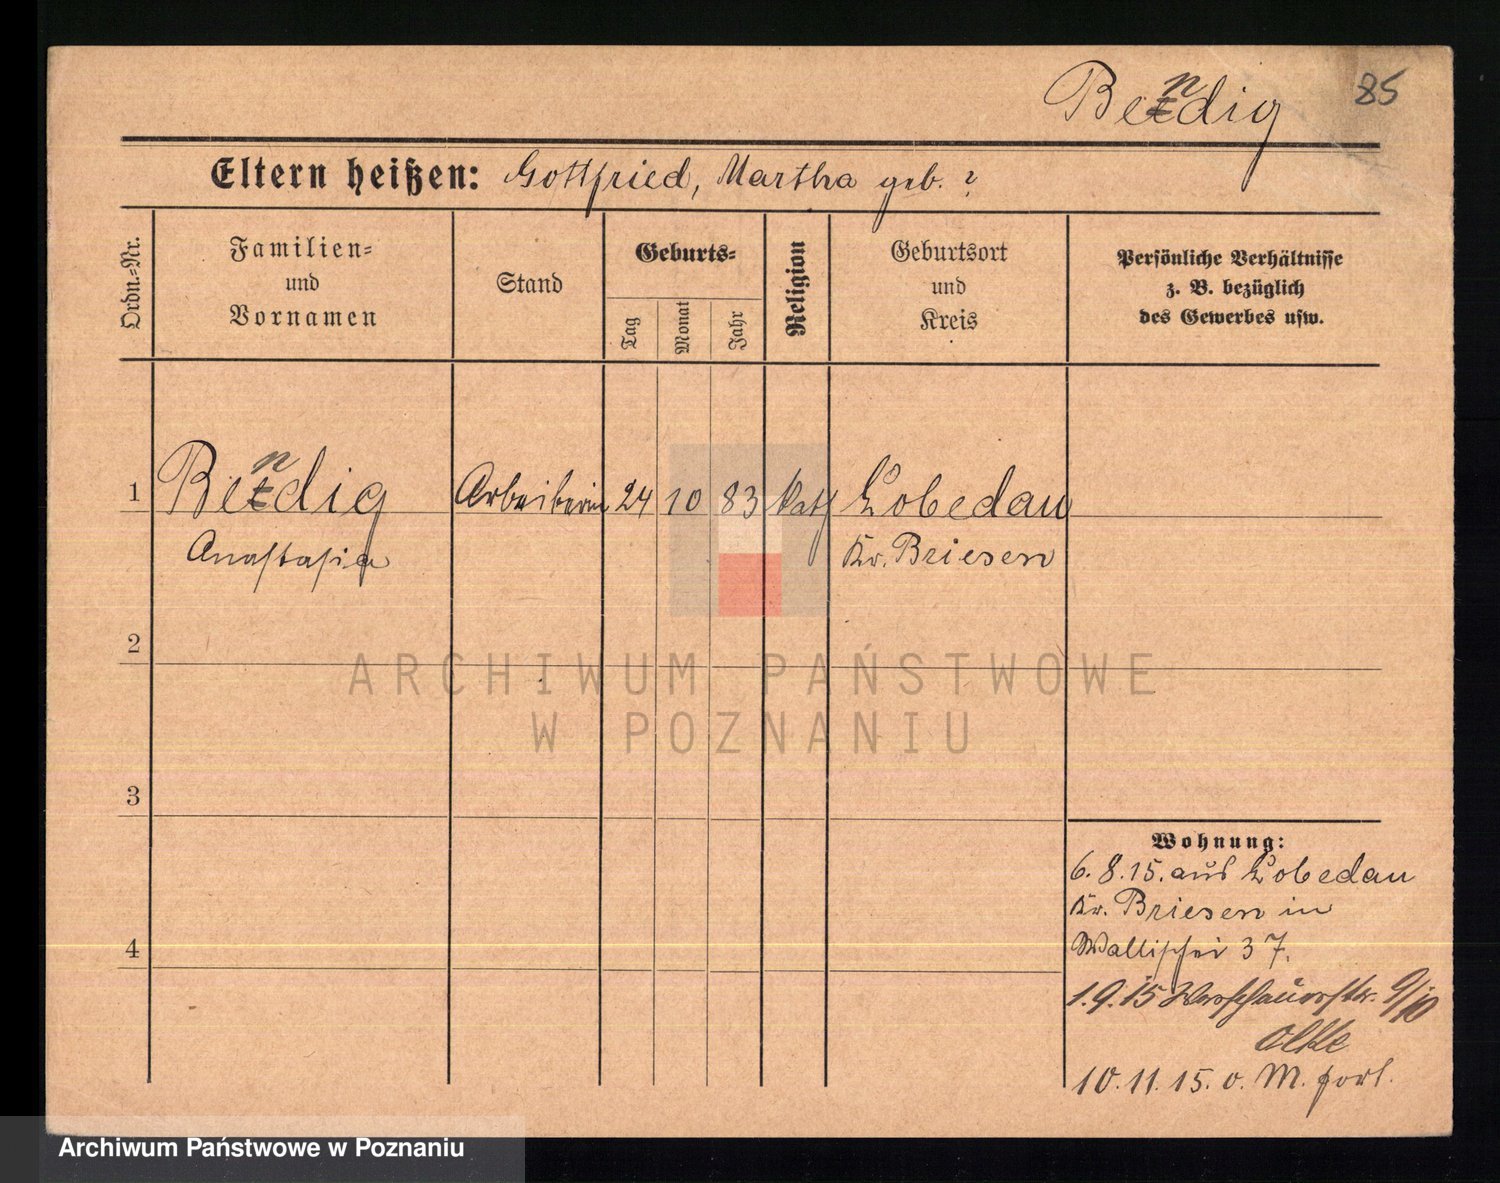 85
Bendig
Eltern heißen: Gottfried, Martha geb. ?
Ordn.-Nr.
Familien-
und
Vornamen
Stand
Geburts-
Tag
Monat
Jahr
Religion
Geburtsort
und
Kreis
Persönliche Verhältnisse
z. B. bezüglich
des Gewerbes usw.
1 Bendig Arbeiterin 24 10 83 kath Lobedau
Anastasia Kr. Briesen
2
3
4
Wohnung:
6. 8. 15. aus Lobedau
Kr. Briesen in
Wallischei 37.
1. 9. 15 Warschauerstr. 9/10
10. 11. 15. o. M. fort.
ARCHIWUM PAŃSTWOWE
W POZNANIU
Archiwum Państwowe w Poznaniu